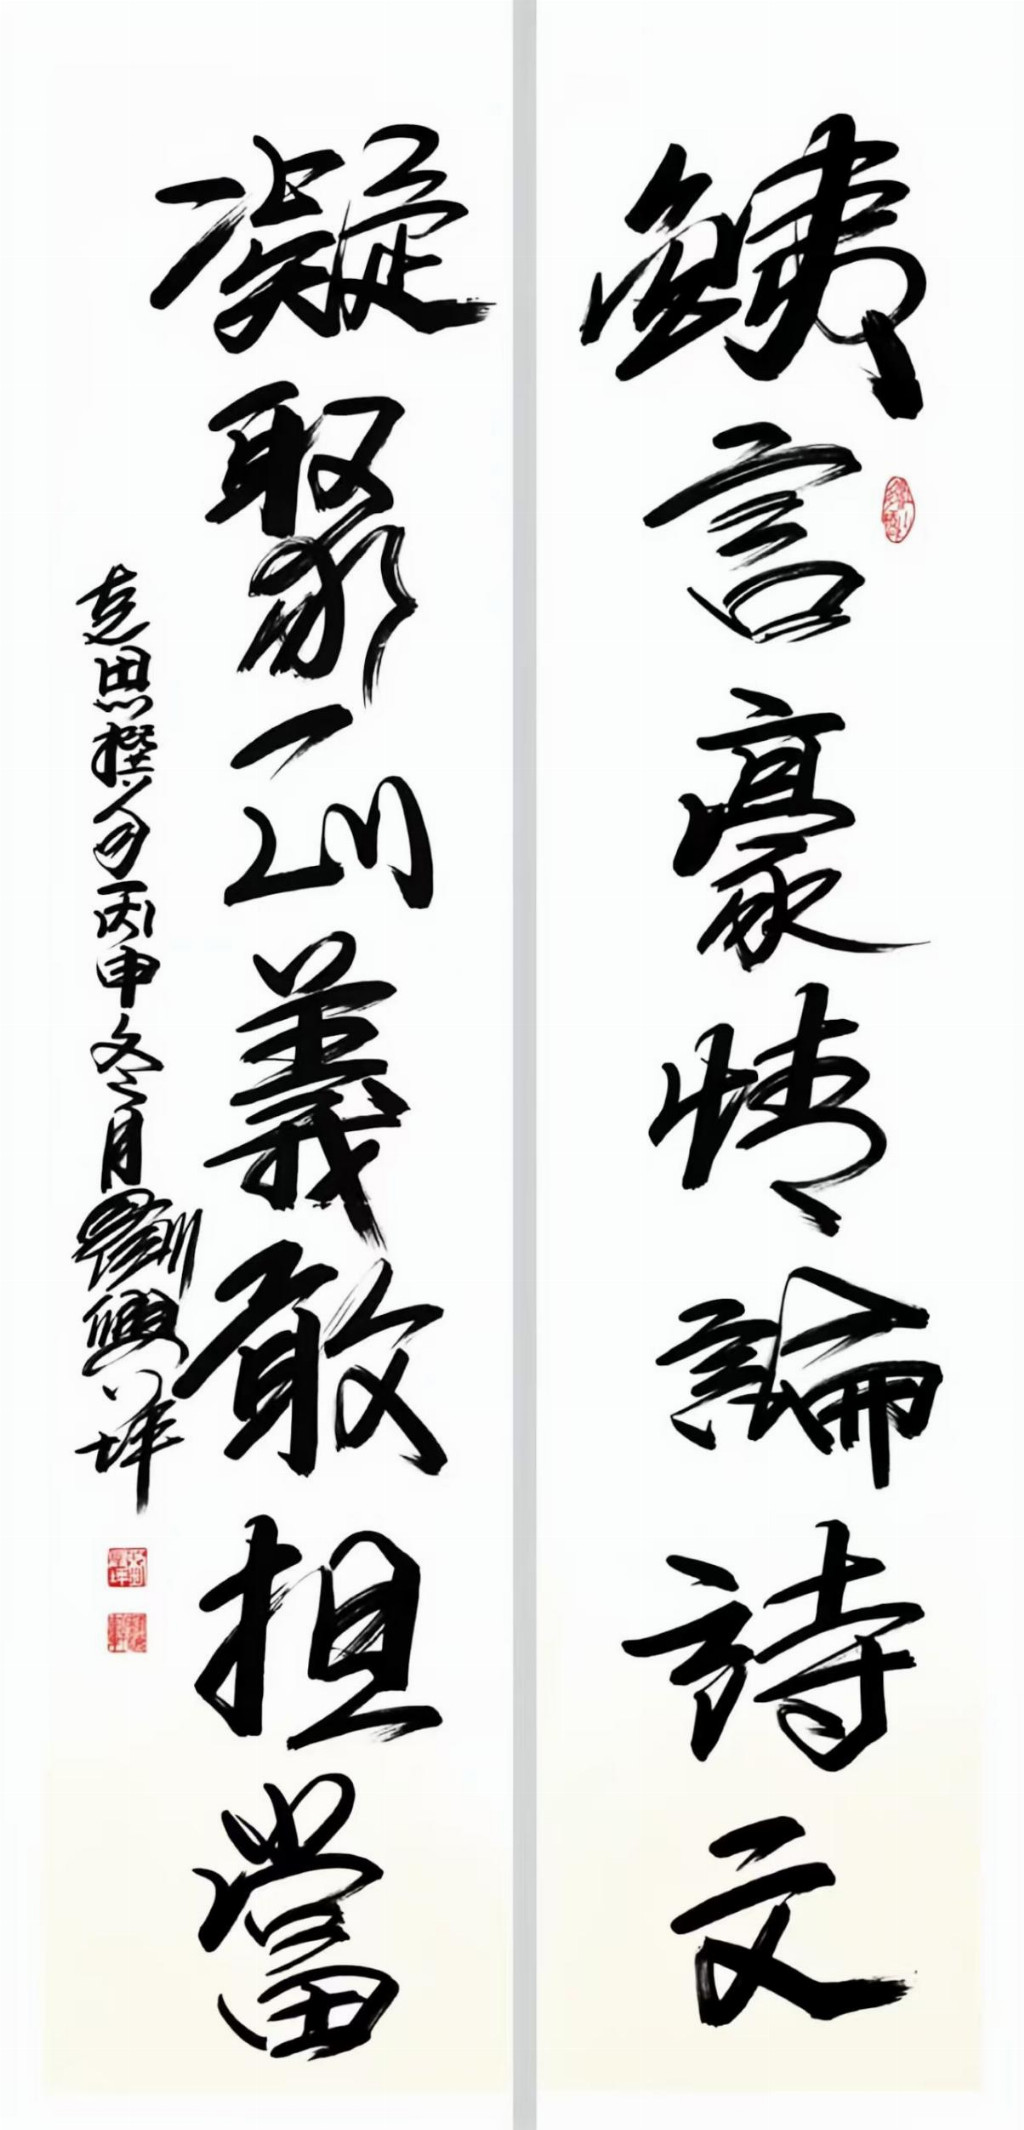 銕言豪情論詩文
凝聚正義敢担當
思撰句丙申冬月劉興坪